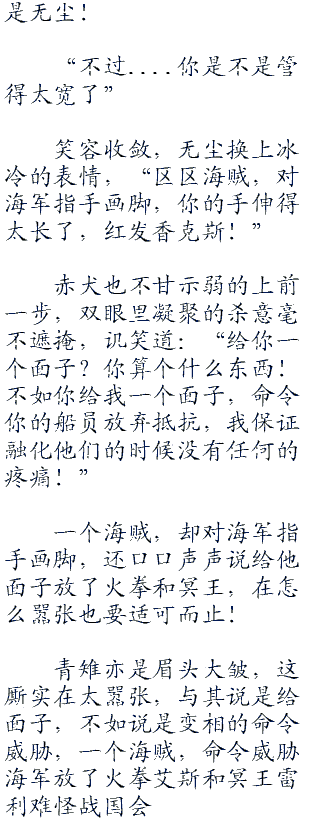 是无尘！
“不过....你是不是管
得太宽了”
笑容收敛，无尘换上冰
冷的表情，“区区海贼，对
海军指手画脚，你的手伸得
太长了，红发香克斯！”
赤犬也不甘示弱的上前
一步，双眼里凝聚的杀意毫
不遮掩，讥笑道：“给你一
个面子？你算个什么东西！
不如你给我一个面子，命令
你的船员放弃抵抗，我保证
融化他们的时候没有任何的
疼痛！”
一个海贼，却对海军指
手画脚，还口口声声说给他
面子放了火拳和冥王，在怎
么嚣张也要适可而止！
青雉亦是眉头大皱，这
厮实在太嚣张，与其说是给
面子，不如说是变相的命令
威胁，一个海贼，命令威胁
海军放了火拳艾斯和冥王雷
利难怪战国会